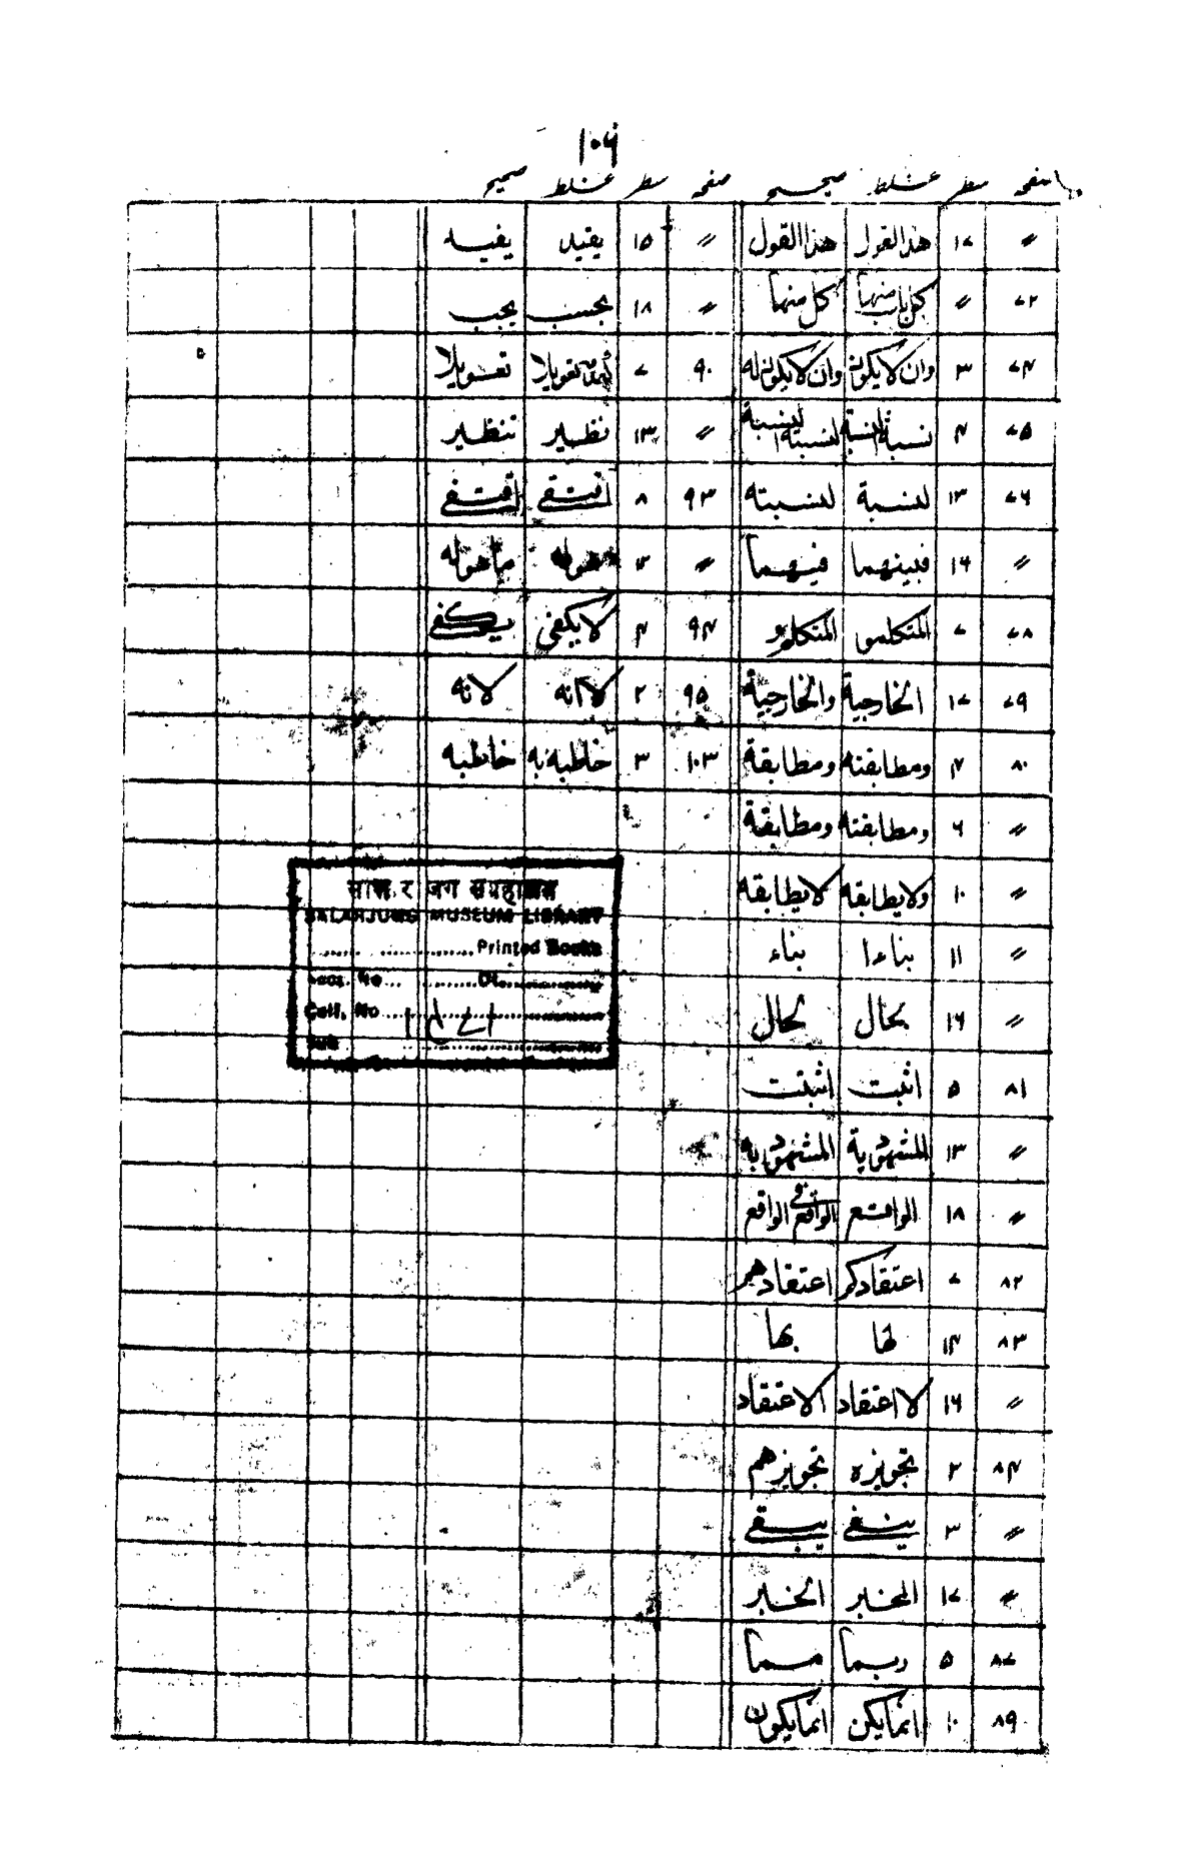 ۱۰۶
صفحہ سطر غلط صحیح صفحہ سطر غلط صحیح
〃 ۱۷ هذالقول هذا القول 〃 ۱۵ يقيد يفيد
۷۲ 〃 كل باب منهما كل منهما 〃 ۱۸ بجسب يجب
۷۴ ۳ وان لا يكون وان لا يكون له ۹۰ ۷ تعويلا تعويلا
۷۵ ۴ 〃 ۱۳ نظير تنظير
۷۶ ۱۳ لنسبة لنسبته ۹۳ ۸ اقتنى اقتفى
〃 ۱۶ فبينهما فيهما 〃 هوله ماهوله
۷۸ ۷ المتكلمو المتكلم و ۹۴ ۴ لا يكفى يكفى
۷۹ ۱۷ الخارجية والخارجية ۹۵ ۲ لاانه لانه
۸۰ ۴ ومطابقته ومطابقة ۱۰۳ ۳ خاطبه به خاطبه
〃 ۶ ومطابقته ومطابقة
〃 ۱۰ ولايطابقه لايطابقه
〃 ۱۱ بناءا بناء
〃 ۱۶ بحال لحال
۸۱ ۵ اثبت اثبتت
〃 ۱۳ للمشهود به المشهود به
〃 ۱۸ الواقع الواقع فى الواقع
۸۲ ۷ اعتقادكم اعتقادهم
۸۳ ۱۴ لها بها
〃 ۱۶ لااعتقاد الاعتقاد
۸۴ ۲ تجويزه تجويزهم
〃 ۳ ينبغى يبقى
〃 ۱۷ المخبر الخبر
۸۷ ۵ ربما مما
۸۹ ۱۰ انما يكن انما يكون
सालार जंग संग्रहालय
SALARJUNG MUSEUM LIBRARY
Printed Books
Accs. No Dt.
Call. No
Sub